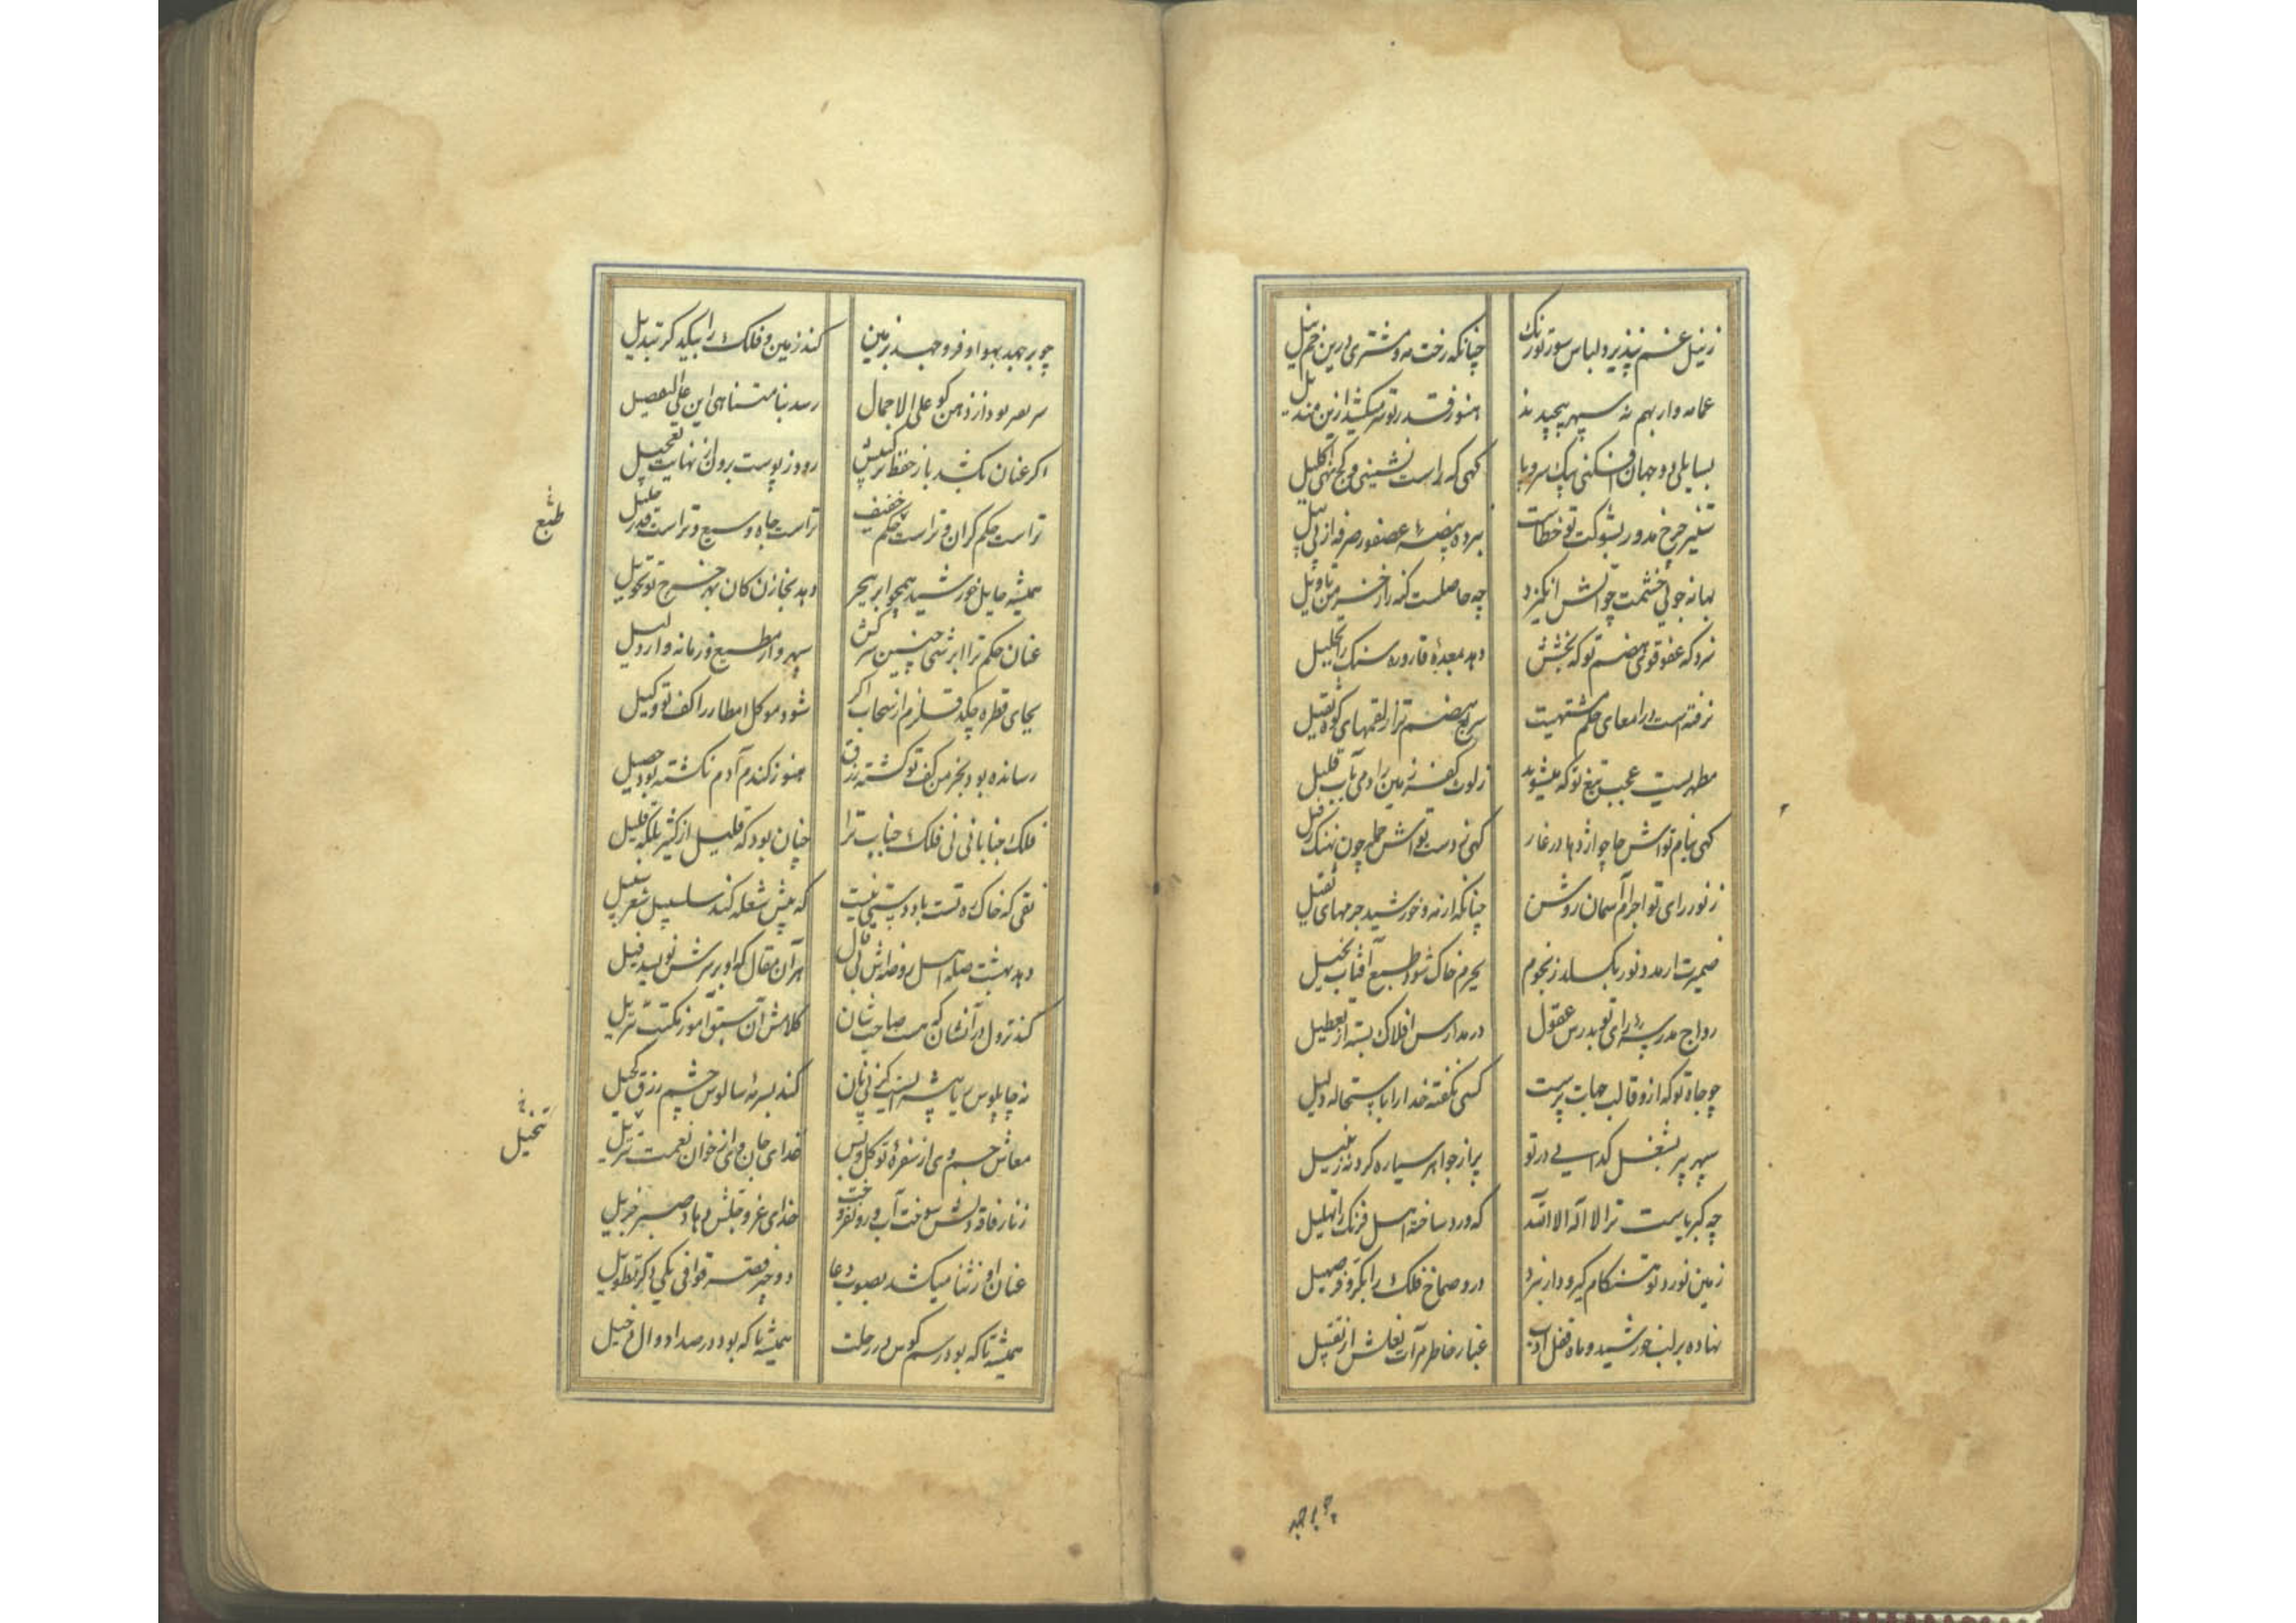 ز نیل غم نپذیرد لباس سور تو رنگ چنانکه رخت مه و مشتری درین خم نیل
عمامه وار بهم نه سپهر پیچیدند هنوز قدر تو سر میکشد ازین مندیل
بسایلی دو جهان افکنی بیک سر و پا کهی که راست نشینی و کج نهی اکلیل
ستیز چرخ مدور بشوکت تو خطاست نبرده بیضهٔ عصفور صرفه از پی پیل
بهانه جویی خشمت چو آتش انگیزد چه حاصلست گنه را ز خرمن تاویل
نرد که عفو قوی هضم تو که بخشش دهد بمعدهٔ قاروره سنگ را تحلیل
نرفته است در امعای حکم مشتهیت سریع هضم تر از لقمهای کوه ثقیل
مطهریست عجب تیغ تو که میشوید ز لوث کفر زمین را دمی بآب قلیل
کهی نیام تواش جا چو اژدها در غار کهی ز دست تواش حمله چون نهنک ز نیل
ز نور رای تو اجرام آسمان روشن چنانکه از مه و خورشید جرمهای ثقیل
ضمیرت ار مدد نور بکسلد ز نجوم بجرم خاک شود طبع آفتاب بخیل
رواج مدرسهٔ رای تو بدرس عقول در مدارس افلاک بسته از تعطیل
چو جاه تو که ازو قالب جهات پرست کسی نکفته خدا را باستحاله دلیل
سپهر پیر بشغل کدایی در تو پر از جواهر سیاره کرده زنبیل
چه کبریاست ترا لا اله الا الله که ورد ساخته اهل فرنک را تهلیل
زمین نورد تو هنکام گیر و دار نبرد درد صماخ فلک را بکر و فر صهیل
نهاده بر لب خورشید و ماه قفل ادب غبار خاطر مرآت نعلش از تقبیل
چو بر جهد
چو بر جهد بهوا و فرو جهد بزمین کند زمین و فلک را بیکدکر تبدیل
سریعتر بود از ذهن کو علی الاجمال رسد بنا متناهی این علی التفصیل
اکر عنان نکشد باز حفظ راکبش رود ز پوست برون از نهایت تعجیل
تراست حکم کران و تراست حکم خفیف تراست جاه وسیع و تراست قدر جلیل
طبع
همیشه مایل خورشید همچو ابر ببحر دهد بخازن کان بهر خرج تو تحویل
عنان حکم ترا ابرشی چنین سرکش سپهر وار مطیع و زمانه وار ذلیل
بجای قطره چکد قلزم از سحاب اکر شود موکل امطار را کف تو وکیل
رسانده بود بخرمن کف تو کشته رزق هنوز کندم آدم نکشته بود حصیل
فلک جنابا نی نی فلک جناب ترا چنان بود که قلیل از کثیر بلکه قلیل
تقی که خاک ره تست باد دستی نیست که پیش شعله کند سلسبیل شعر سبیل
دهد بهشت صله اهل روضه اش بی قال هر آن مقال که او بر سرش نویسد قیل
کند نزول در آنشان که هست صاحب شان کلامش آن سبق آموز مکتب تنزیل
نه چاپلوس ریا پیشه کز پی نان کند بسرمهٔ سالوس چشم رزق کحیل
تخیل
معاش جسم وی از سفرهٔ توکل و بس غذای جان وی از خوان نعمت تنزیل
ز نار فاقه دلش سوخت آب رو نفروخت خدای عز و جلش دهاد صبر جزیل
عنان او ز ثنا میکشد بصوب دعا دو چیز قصر قوافی یکی دکر تطویل
همیشه تا که بود در رسم کوس در رحلت همیشه تا که بود در صدا دوال رحیل